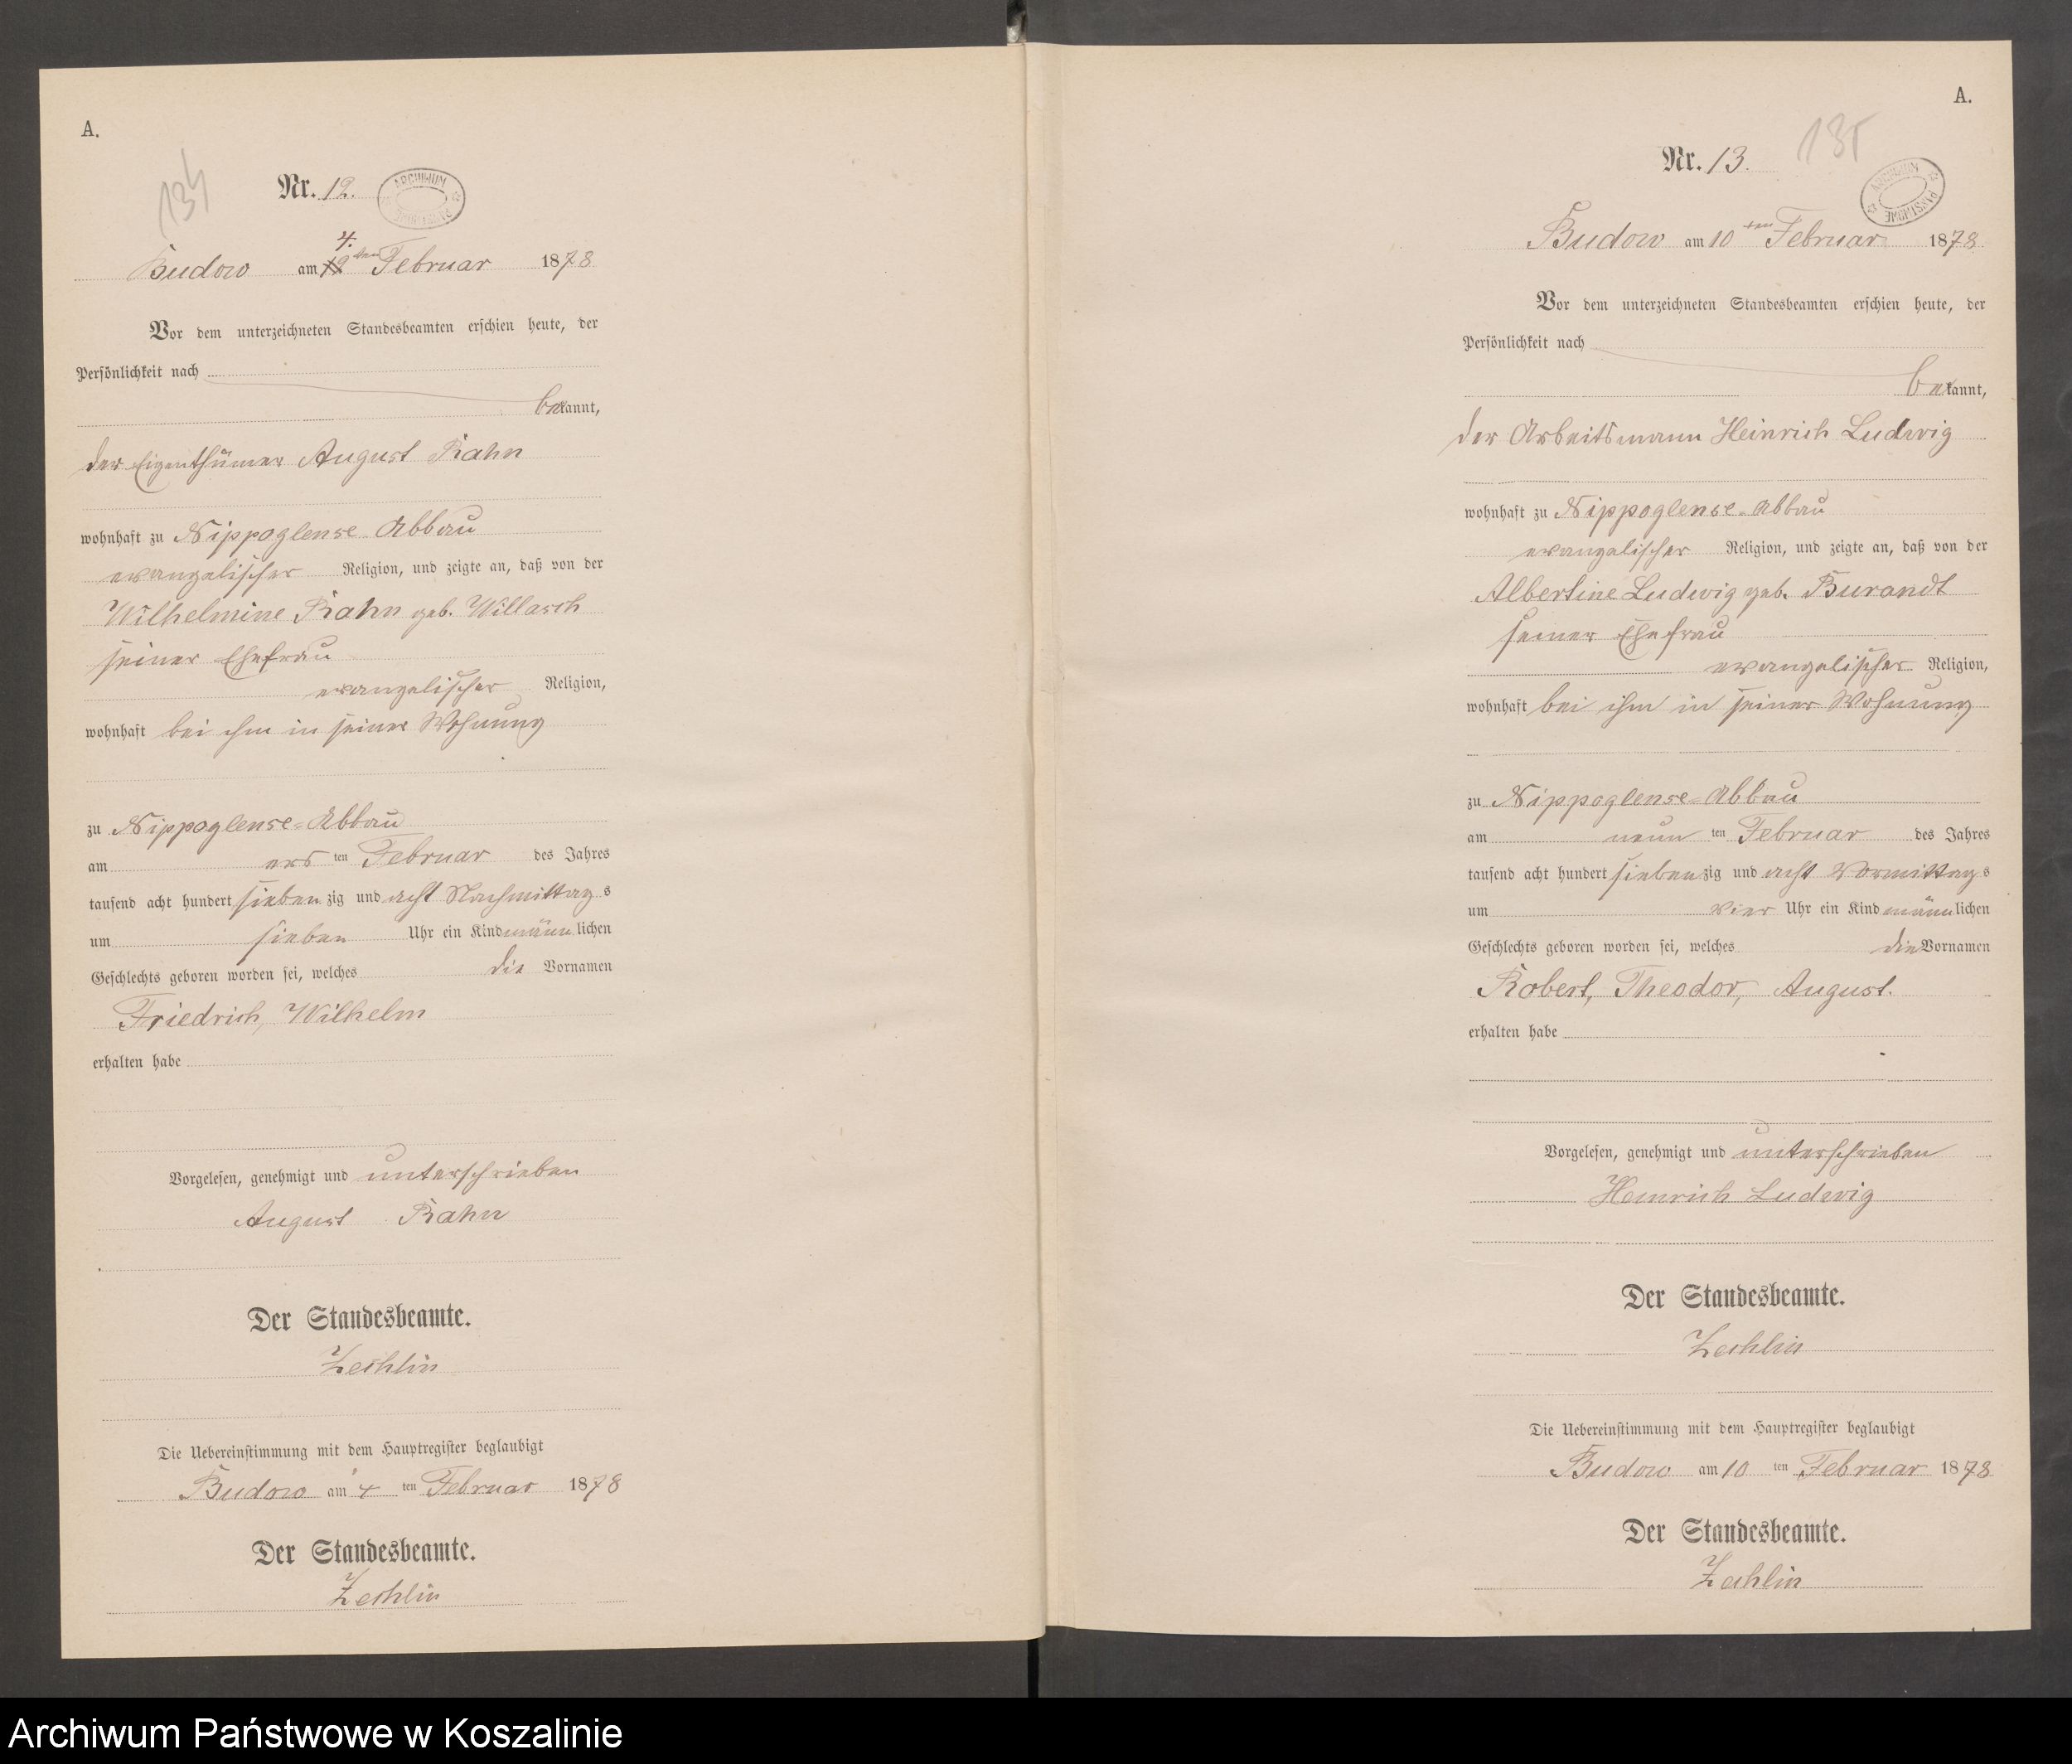 A.
134
Nr. 12.
ARCHIWUM PAŃSTWOWE
4.
Budow am 12 ten Februar 1878
Vor dem unterzeichneten Standesbeamten erschien heute, der
Persönlichkeit nach
bekannt,
der Eigenthümer August Rahn
wohnhaft zu Nippoglense Abbau
evangelischer Religion, und zeigte an, daß von der
Wilhelmine Rahn geb. Willasch
seiner Ehefrau
evangelischer Religion,
wohnhaft bei ihm in seiner Wohnung
zu Nippoglense-Abbau
am ers ten Februar des Jahres
tausend acht hundert sieben zig und acht Nachmittag s
um sieben Uhr ein Kind männlichen
Geschlechts geboren worden sei, welches die Vornamen
Friedrich, Wilhelm
erhalten habe
Vorgelesen, genehmigt und unterschrieben
August Rahn
Der Standesbeamte.
Zechlin
Die Uebereinstimmung mit dem Hauptregister beglaubigt
Budow am 4 ten Februar 1878
Der Standesbeamte.
Zechlin
A.
135
Nr. 13.
ARCHIWUM PAŃSTWOWE
Budow am 10 ten Februar 1878
Vor dem unterzeichneten Standesbeamten erschien heute, der
Persönlichkeit nach
bekannt,
der Arbeitsmann Heinrich Ludwig
wohnhaft zu Nippoglense-Abbau
evangelischer Religion, und zeigte an, daß von der
Albertine Ludwig geb. Burandt
seiner Ehefrau
evangelischer Religion,
wohnhaft bei ihm in seiner Wohnung
zu Nippoglense-Abbau
am neun ten Februar des Jahres
tausend acht hundert sieben zig und acht Vormittag s
um vier Uhr ein Kind männlichen
Geschlechts geboren worden sei, welches die Vornamen
Robert, Theodor, August.
erhalten habe
Vorgelesen, genehmigt und unterschrieben
Heinrich Ludwig
Der Standesbeamte.
Zechlin
Die Uebereinstimmung mit dem Hauptregister beglaubigt
Budow am 10 ten Februar 1878
Der Standesbeamte.
Zechlin
Archiwum Państwowe w Koszalinie